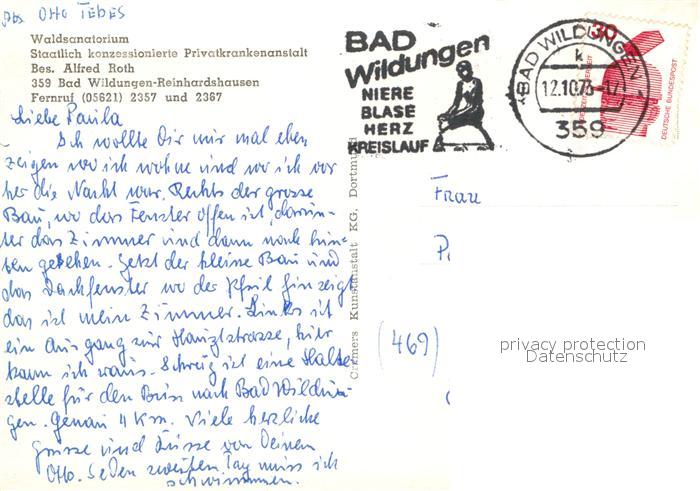 Abs. OTTO TEBES
Waldsanatorium
Staatlich konzessionierte Privatkrankenanstalt
Bes. Alfred Roth
359 Bad Wildungen-Reinhardshausen
Fernruf (05621) 2357 und 2367
Liebe Paula
Ich wollte Dir nur mal eben
zeigen wo ich wohne und wo ich vor
her die Nacht war. Rechts der grosse
Bau, wo das Fenster offen ist, darun-
ter das Zimmer und dann nach hin-
ten gesehen. Jetzt der kleine Bau und
das Dachfenster wo der Pfeil hinzeigt
das ist mein Zimmer. Links ist
ein Ausgang zur Hauptstrasse, hier
kann ich raus. Schräg ist eine Halte
stelle für den Bus nach Bad Wildun-
gen. Genau 4 Km. Viele herzliche
Grüsse und Küsse von Deinem
Otto. Jeden zweiten Tag muss ich
schwimmen.
Cramers Kunstanstalt KG. Dortmund
BAD
Wildungen
NIERE
BLASE
HERZ
KREISLAUF
BAD WILDUNGEN 1
k
12.10.73-17
359
30
DEUTSCHE BUNDESPOST
Frau
P
(469)
privacy protection
Datenschutz